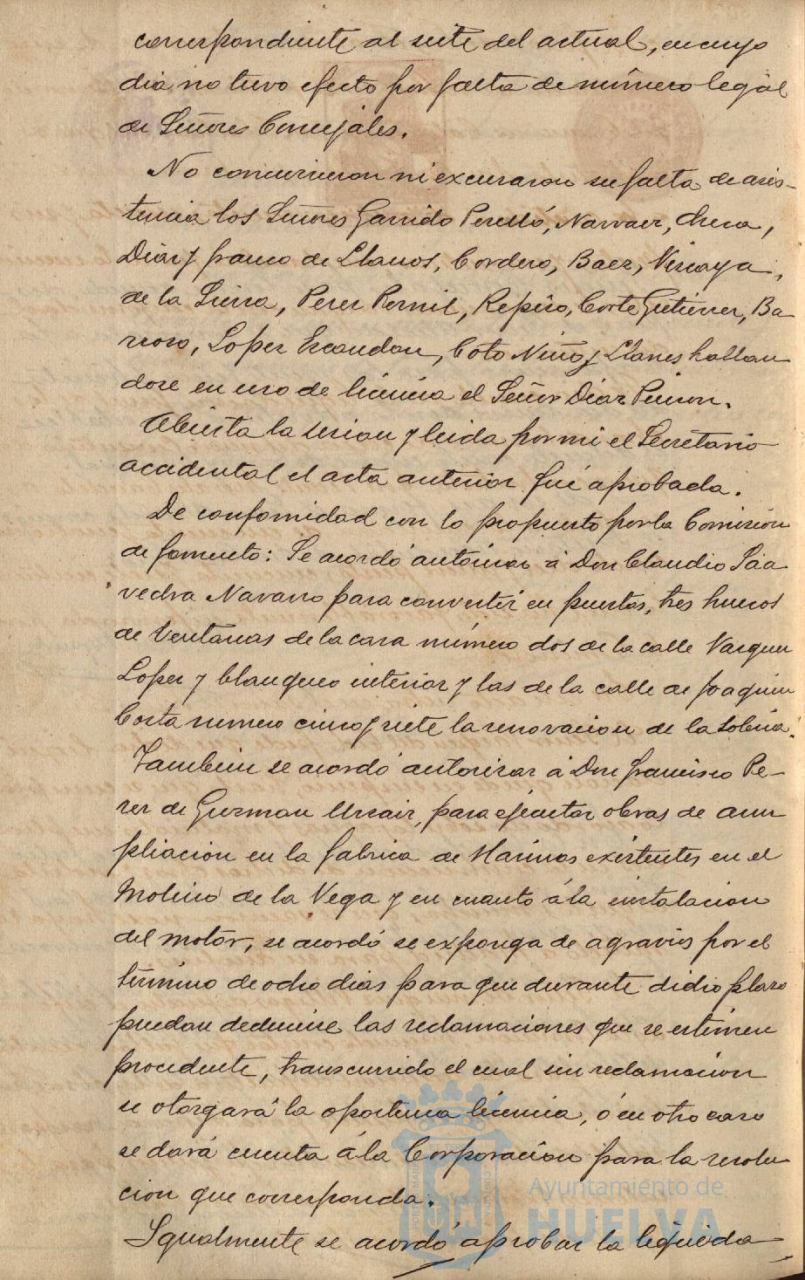 correspondiente al siete del actual, en cuyo
dia no tuvo efecto por falta de número legal
de Señores Concejales.
No concurrieron ni excusaron su falta de asis-
tencia los Señores Garrido Perelló, Narvaez, Checa,
Diaz y franco de Llanos, Cordero, Baez, Vizcaya,
de la Sierra, Perez Pernil, Repiso, Corte Gutierrez, Ba
rroso, Lopez Escandon, Coto Niño y Llanes hallan
dose en uso de licencia el Señor Diaz Pinzon.
Abierta la sesion y leida por mi el Secretario
accidental el acta anterior fué aprobada.
De confomidad con lo propuesto por la Comisión
de fomento: Se acordó autorizar á Don Claudio Saa
vedra Navarro para convertir en puertas, tres huecos
de ventanas de la casa número dos de la calle Vazquez
Lopez y blanqueo interior y las de la calle de Joaquin
Costa numero cinco y siete la renovacion de la solería.
Tambien se acordó autorizar á Don francisco Pe-
rez de Guzman Urzaiz, para ejecutar obras de am
pliación en la fabrica de Harinas existentes en el
Molino de la Vega y en cuanto á la instalacion
del motor, se acordó se exponga de agravios por el
término de ocho dias para que durante dicho plazo
puedan deducirse las reclamaciones que se estimen
procedente, transcurrido el cual sin reclamacion
se otorgará la oportuna licencia, ó en otro caso
se dará cuenta á la Corporación para la resolu
cion que corresponda.
Igualmente se acordó aprobar la liquida
Ayuntamiento de
HUELVA